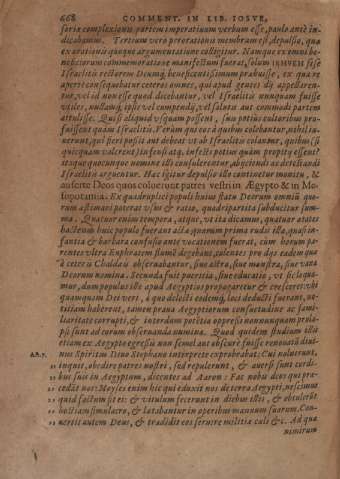 668 COMMENT. IN LIB. IOSVE,
soriæ complexionis partem imperatiuum verbum esse, paulo ante in-
dicabamus. Tertium verò perorationis membrum est, depulsio, quæ
ex oratione quoque argumentatione colligitur. Namque ex omni be-
neficiorum commemoratione manifestum fuerat, solum IHVVEH fuisse
Israëlitis rectorem Deumque beneficentissimum præbuisse, ex qua re
apertè consequebatur ceteros omnes, qui apud gentes dij appellaren-
tur, vel id non esse quod dicebantur, vel Israëlitis nunquam fuisse
vtiles, nullamque opis vel cumpendij, vel salutis aut commodi partem
attulisse. Quòd si aliquid vsquam possent, suis potius cultoribus pro-
fuissent quàm Israëlitis. Verùm qui eos à quibus colebantur, nihil iu-
uerunt, qui fieri possit aut debeat vt ab Israëlitis colantur, quibus si
quicquam valerent siue scirent, infesti potius quàm propitij essent?
atque quocunque nomine illos consulerentur, abijciendi ac detestandi
Israëlitis arguentur. Hæc igitur depulsio illo continetur monitu, &
auferte Deos quos coluerunt patres vestri in Ægypto & in Me-
sopotamia. Ex quadruplici populi huius statu Deorum omnium quo-
rum existimari poterat vsus & ratio, quadripartita subducitur sum-
ma. Quatuor enim tempora, atque, vt ita dicamus, quatuor ætates
hactenus huic populo fuerant actæ, quarum prima rudis illa, quasi in-
fantia & barbara confusio ante vocationem fuerat, cùm horum pa-
rentes vltra Euphratem flumen degebant, colentes pro dijs eadem quæ
à ceteris Chaldæis obseruabantur, siue astra, siue monstra, siue vana
Deorum nomina. Secunda fuit pueritia, siue educatio, vt sic loqua-
mur, dum populus ille apud Ægyptios propagaretur & cresceret: vbi
quamquam Dei veri, à quo delecti eodemque loci deducti fuerant, no-
titiam haberent, tamen praua Ægyptiorum consuetudine ac fami-
liaritate corrupti, & interdum potestate oppressi nonnunquam prola-
psi sunt ad eorum obseruanda numina. Quod quidem studium illis
etiam ex Ægypto egressis non semel aut obscurè fuisse renouatū diui-
Act. 7. nus Spiritus Diuo Stephano interprete exprobrabat: Cui noluerunt,
„ inquit, obedire patres nostri, sed repulerunt, & auersi sunt cordi-
„ bus suis in Ægyptum, dicentes ad Aaron: Fac nobis deos qui præ-
„ cedāt nos: Moyses enim hic qui eduxit nos de terra Aegypti, nescimus
„ quid factum sit ei: & vitulum fecerunt in diebus illis, & obtulerūt
„ hostiam simulacro, & lætabantur in operibus manuum suarum. Con-
„ uertit autem Deus, & tradidit eos seruire militiæ cæli &c. Ad quæ
nimirum